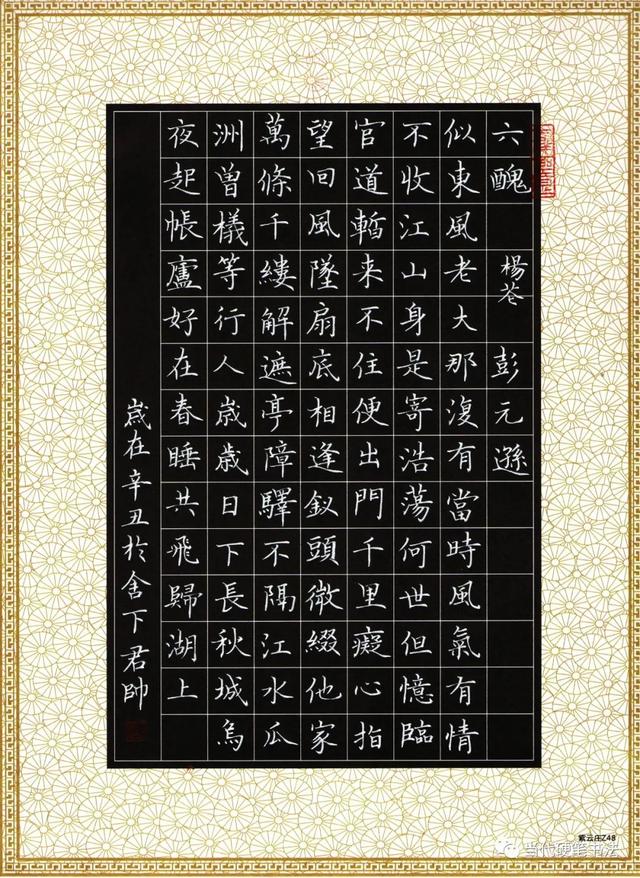 六醜 楊芲 彭元遜
似東風老大那復有當時風氣有情
不收江山身是寄浩蕩何世但憶臨
官道暫来不住便出門千里癡心指
望回風墜扇底相逢釵頭微綴他家
萬條千縷解遮亭障驛不隔江水瓜
洲曾檥等行人歲歲日下長秋城烏
夜起帳廬好在春睡共飛歸湖上
歲在辛丑於舍下君帥
紫云庄Z48
当代硬笔书法